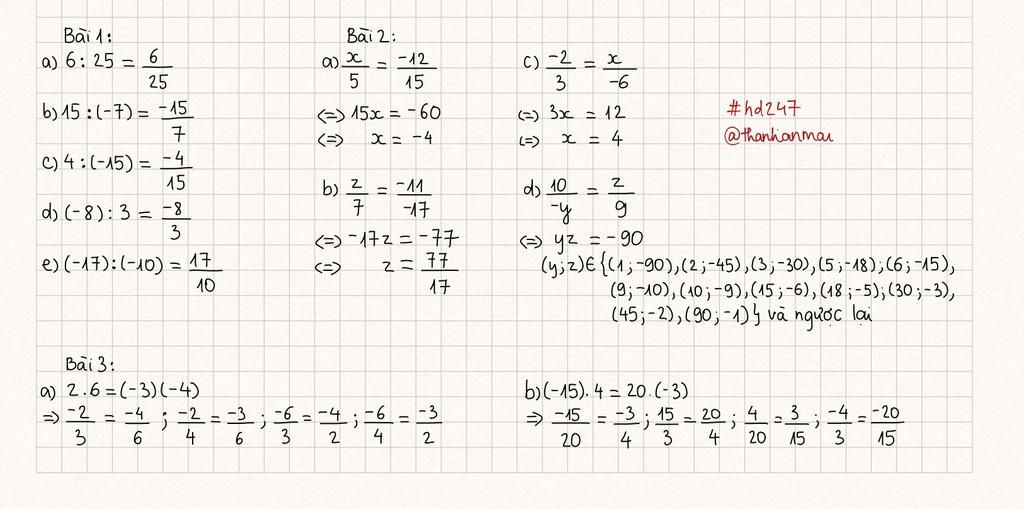 Bài 1:
a) 6 : 25 = 6/25
b) 15 : (-7) = -15/7
c) 4 : (-15) = -4/15
d) (-8) : 3 = -8/3
e) (-17) : (-10) = 17/10
Bài 2:
a) x/5 = -12/15
<=> 15x = -60
<=> x = -4
b) z/7 = -11/-17
<=> -17z = -77
<=> z = 77/17
c) -2/3 = x/-6
<=> 3x = 12
<=> x = 4
d) 10/-y = z/9
<=> yz = -90
(y;z) ∈ {(1;-90),(2;-45),(3;-30),(5;-18);(6;-15),
(9;-10),(10;-9),(15;-6),(18;-5);(30;-3),
(45;-2),(90;-1)} và ngược lại
#hd247
@thanhanmau
Bài 3:
a) 2.6 = (-3)(-4)
=> -2/3 = -4/6 ; -2/4 = -3/6 ; -6/3 = -4/2 ; -6/4 = -3/2
b) (-15).4 = 20.(-3)
=> -15/20 = -3/4 ; 15/3 = 20/4 ; 4/20 = 3/15 ; -4/3 = -20/15